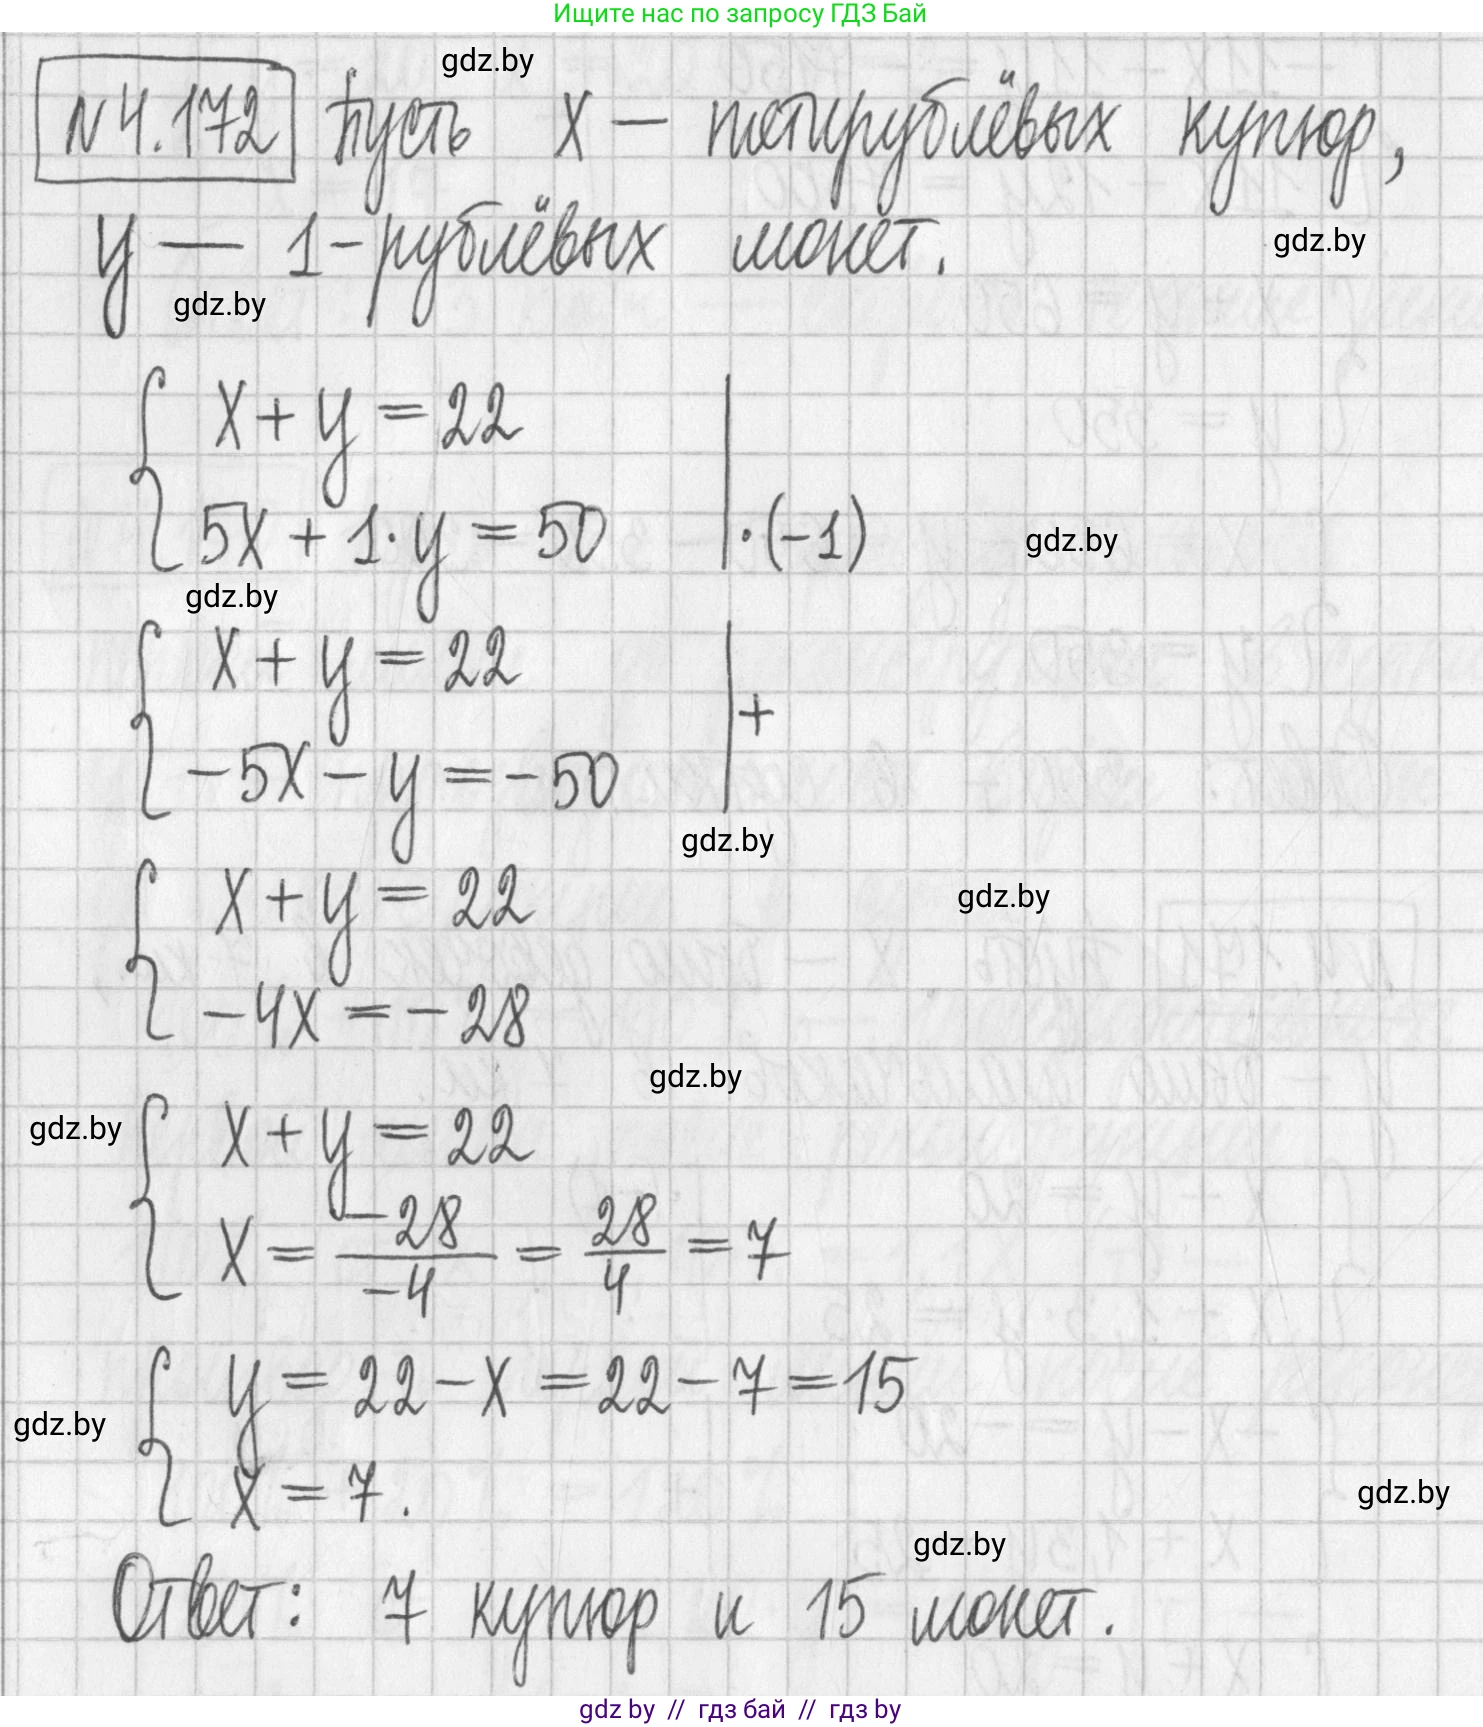 Ищите нас по запросу ГДЗ Бай
gdz.by
N 4.172 Пусть x — пятирублёвых купюр,
y — 1-рублёвых монет.
gdz.by
gdz.by
x + y = 22
5x + 1 · y = 50 | · (-1)
gdz.by
gdz.by
x + y = 22
-5x - y = -50 | +
gdz.by
x + y = 22
gdz.by
-4x = -28
gdz.by
gdz.by
x + y = 22
x = -28/-4 = 28/4 = 7
y = 22 - x = 22 - 7 = 15
gdz.by
x = 7.
gdz.by
gdz.by
Ответ: 7 купюр и 15 монет.
gdz by // гдз бай // гдз by